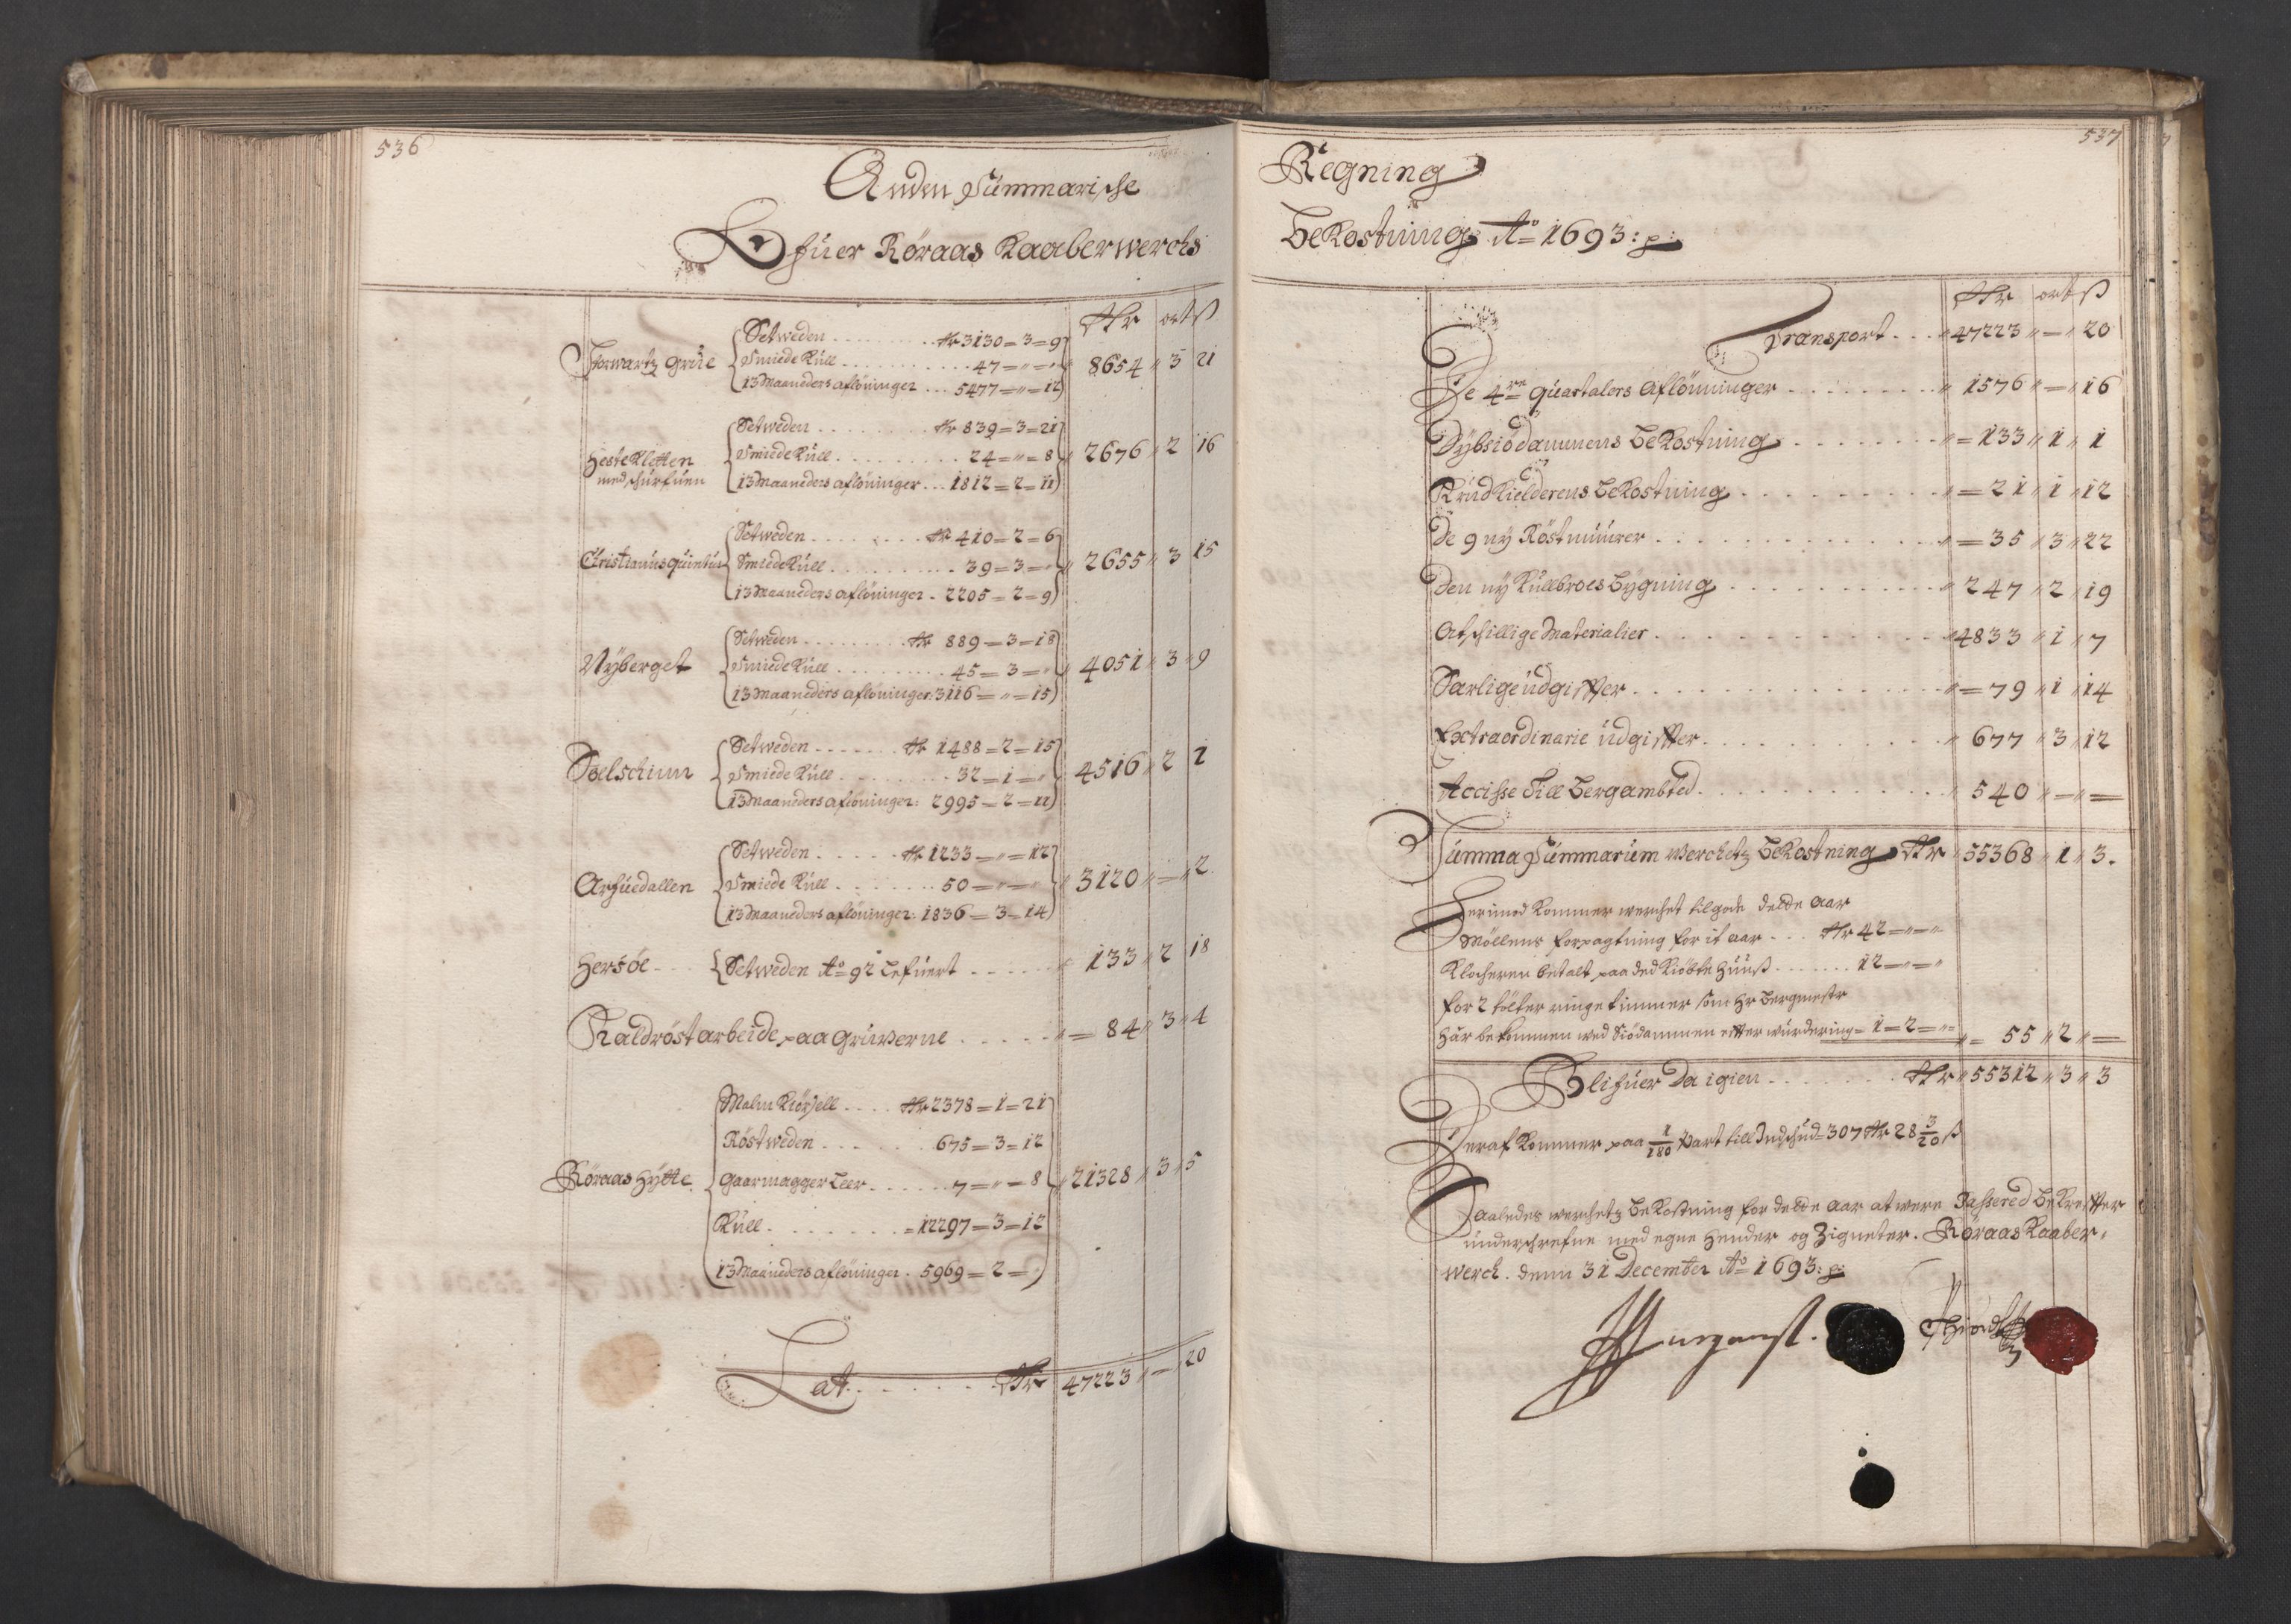 536
Anden Summarische
Ofuer Röraas Kaaberwerchs
Rdr ort ß
Storwartz Grúe
Setweden . . . . Rdr 3130 = 3 = 9
Smiede Kúll . . . . 47 = " = "
13 Maaneders aflöninger . . . 5477 = " = 12
8654 " 3 21
Hesteklötten
med schúrfúen
Setweden . . . . Rdr 839 = 3 = 21
Smiede Kúll . . . . 24 = " = 8
13 Maaneders aflöninger . . . 1812 = 2 = 11
2676 " 2 16
Christianus quintús
Setweden . . . . Rdr 410 = 2 = 6
Smiede Kúll . . . . 39 = 3 = "
13 Maaneders aflöninger . 2205 = 2 = 9
2655 " 3 15
Nÿberget
Setweden . . . . Rdr 889 = 3 = 18
Smiede Kúll . . . . 45 = 3 = "
13 Maaneders aflöninger. 3116 = " = 15
4051 " 3 " 9
Soelschinn
Setweden . . . . Rdr 1488 = 2 = 15
Smiede Kúll . . . . 32 = 1 = "
13 Maaneders aflöninger: 2995 = 2 = 11
4516 " 2 2
Arfúedallen
Setweden . . . . Rdr 1233 = " = 12
Smiede Kúll . . . . 50 = " = "
13 Maaneders aflöninger: 1836 = 3 = 14
3120 " = " 2
Hersöe . . . Setweden Aō 92 Lefúert . . . . 133 " 2 18
Kaldröst arbeide paa Grúwerne . . . . " = 84 " 3 " 4
Röraas Hÿtte
Malm Kiörsell . . . . Rdr 2378 = 1 = 21
Röstweden . . . . 675 = 3 = 12
Gaarmagger Leer . . . . 7 = " = 8
Kúll . . . . = 12297 = 3 = 12
13 Maaneders aflöninger . 5969 = 2 = "
21328 " 3 " 5
Lat . . . . Rdr 47223 " = " 20
537
Regning
Bekostning Aō 1693: p:
Rdr ort ß
Transport . . . " 47223 " = " 20
De 4re Quartalers Aflönninger . . . . " 1576 " = " 16
Dÿbsiödammens Bekostning . . . . " = 133 " 1 " 1
Krúdkielderens Bekostning . . . . " = 21 " 1 " 12
De 9 nÿ Röstmúúrer . . . . " = 35 " 3 " 22
Den nÿ Kúllbroes Bÿgning . . . . " 247 " 2 " 19
Atschillige Materialier . . . . " 4833 " 1 " 7
Særlige údgiffter . . . . " = 79 " 1 " 14
Extraordinarie údgiffter . . . . " 677 " 3 " 12
Accisse till Bergambted . . . . " 540 " = " =
Summa Summarúm Werchetz Bekostning Rdr " 55368 " 1 " 3.
Herimod kommer werchet tilgode dette Aar
Möllens forpagtning for it aar . . . Rdr 42 = " = "
Klocheren betalt paa ded Kiöbte Húúß . . . . 12 = " = "
for 2 tölter ringe timmer som Hr Bergmestr
har bekommen wed Siödammen efter wúrdering = 1 = 2 = "
" = 55 " 2 " =
Blifúer Da igien . . . . Rdr " 55312 " 3 " 3
Heraf kommer paa 1/180 Part till Indschúd = 307 Rdr 28 3/20 ß
Saaledes werchetz Bekostning for dette Aar at were Passered Bekreffter
únderschrefne med egne Hender og Zigneter. Röraas Kaaber,
werch. denn 31 December Aō 1693: p: